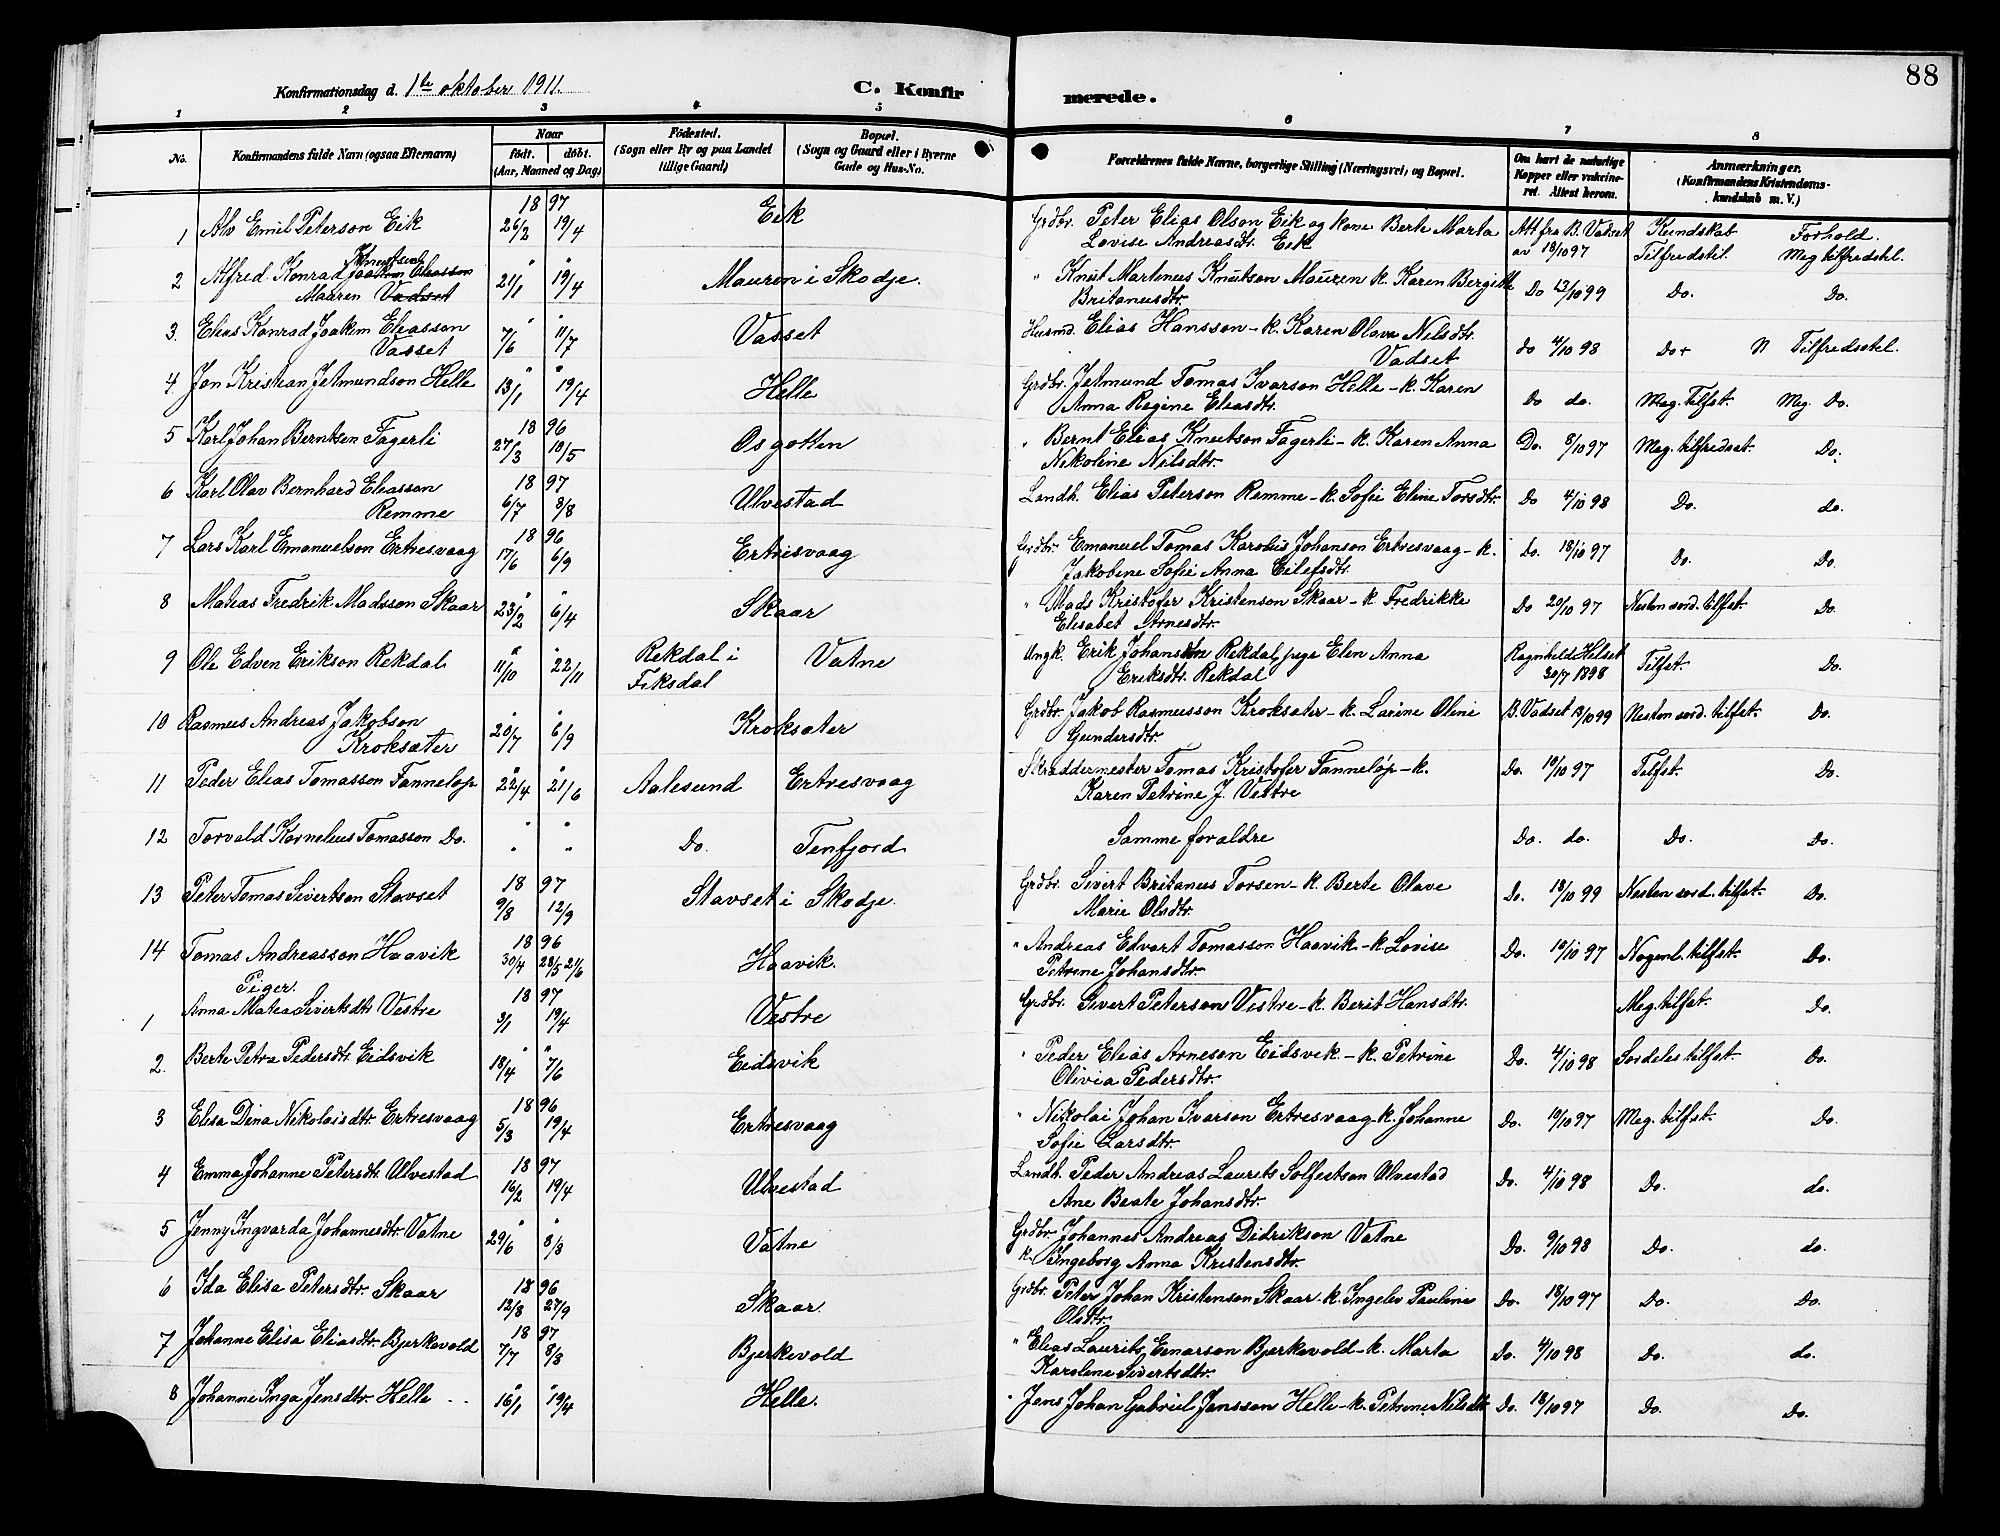 88
Konfirmationsdag d. 1ste oktober 1911.
C. Konfirmerede.
1 2 3 4 5 6 7 8
No. Konfirmandens fulde Navn (ogsaa Efternavn) Naar født. døbt. (Aar, Maaned og Dag) Fødested. (Sogn eller By og paa Landet tillige Gaard) Bopæl. (Sogn og Gaard eller i Byerne Gade og Hus-No. Forældrenes fulde Navne, borgerlige Stilling (Næringsvei) og Bopæl. Om havt de naturlige Kopper eller vakcineret. Attest herom. Anmærkninger. (Konfirmandens Kristendomskundskab m. V.)
18 97
1 Alv Emil Peterson Eik 26/2 19/4 Eik Grdbr. Peter Elias Olson Eik og kone Berte Marta Att fra B. Vadset Kundskab Forhold.
Lovise Andreasdtr. Eik av 18/10 97 Tilfredstil. Meg tilfredstil.
2 Alfred Konrad Knutson Joakim Eleasson " " Knut Martinus Knutson Mauren k. Karen Bergitte
Mauren Vadset 21/1 19/4 Mauren i Skodje. Britanusdtr. Do 13/10 99 Do. Do.
3. Elias Konrad Joakim Eleasson " " Husmd. Elias Hansson - k. Karen Olava Nilsdtr.
Vasset 7/6 11/7 Vasset Vadset do 4/10 98 Do N Tilfredsstil.
4 Jon Kristian Jetmundson Helle 13/1 19/4 Helle Grdbr. Jetmund Tomas Ivarson Helle - k. Karen
Anna Regine Eleasdtr. Do do. Meg. tilfst. Mg. Do.
18 96
5 Karl Johan Berntsen Fagerli 27/3 10/5 Osgotten " Bernt Elias Knutson Fagerli - k. Karen Anna
Nikoline Nilsdtr. Do. 8/10 97 Meg. tilfredsst. Do.
18 97
6 Karl Olav Bernhard Eleasson Landh. Elias Peterson Remme - k. Sofie Eline Torsdtr.
Remme 6/7 8/8 Ulvestad Do 4/10 98 Do. do.
18 96
7 Lars Karl Emanuelson Ertresvaag 17/6 6/9 Ertresvaag Grdbr. Emanuel Tomas Karolus Johanson Ertresvaag - k.
Jakobine Sofie Anna Eilefsdtr. Do. 18/10 97 Do. Do.
8 Mateas Fredrik Madsson Skaar 23/2 6/4 Skaar " Mads Kristofer Kristenson Skaar - k Fredrikke
Elisabet Arnesdtr. Do 20/10 97 Nesten sørd. tilfst. Do.
9 Ole Edven Erikson Rekdal 11/10 22/11 Rekdal i Fiksdal Vatne Ungk. Erik Johanson Rekdal, pige Elen Anna
Eriksdtr. Rekdal Ragnhild Helset 30/7 1898 Tilfst. Do.
10 Rasmus Andreas Jakobson Grdbr. Jakob Rasmusson Kroksæter - k. Larine Oline
Kroksæter 20/7 6/9 Kroksæter Gundersdtr. B. Vadset 13/10 99 Nesten sørd. tilfst. Do.
11 Peder Elias Tomasson Tanneløp 22/4 21/6 Aalesund Ertresvaag Skræddermester Tomas Kristofer Tanneløp - k.
Karen Petrine J. Vestre Do. 10/10 97 Tilfst. Do.
12 Torvald Kornelius Tomasson Do. " " Do. Tenfjord Samme forældre Do. do. Do. Do.
18 97
13 Peter Tomas Sivertson Stavset 9/8 12/9 Stavset i Skodje. Grdbr. Sivert Britanus Torsen - k Berte Olave
Marie Olsdtr. Do. 18/10 99 Nesten sørd. tilfst. Do.
18 96
14 Tomas Andreasson Haavik 30/4 28/5 21/6 Haavik. " Andreas Edvart Tomasson Haavik - k. Lovise
Petrine Johansdtr. Do. 10/10 97 Nogenl. tilfst. Do.
Piger.
18 97
1 Anna Matea Sivertsdtr Vestre 3/1 19/4 Vestre Grdbr. Sivert Peterson Vestre - k. Berit Hansdtr. Meg. tilfst. Do.
2. Berte Petra Pedersdtr. Eidsvik 18/4 7/6 Eidsvik " Peder Elias Arneson Eidsvik - k. Petrine
Olivia Pedersdtr. Do. 4/10 98 Sørdeles tilfst. Do.
18 96
3 Elisa Dina Nikolaisdtr. Ertresvaag 5/3 19/4 Ertresvaag " Nikolai Johan Ivarson Ertresvaag - k. Johanne
Sofie Larsdtr. Do. 10/10 97 Meg. tilfst. Do.
18 97
4 Emma Johanne Petersdtr Ulvestad 16/2 19/4 Ulvestad Landh. Peder Andreas Laurits Solfestson Ulvestad
Ane Beate Johansdtr. Do. 4/10 98 Do. do.
5 Jenny Ingvarda Johannesdtr. Vatne 29/6 8/8 Vatne Grdbr. Johannes Andreas Didrikson Vatne
k. Ingeborg Anna Kristensdtr. Do. 9/10 98 Do. do.
18 96
6 Ida Elisa Petersdtr. Skaar 12/8 27/9 Skaar Grdbr. Peter Johan Kristenson Skaar - k. Ingelev Pauline
Olsdtr. Do. 18/10 97 Do. Do.
18 97
7 Johanne Elisa Eliasdtr. Bjerkevold 7/7 8/8 Bjerkevold " Elias Laurits Einarson Bjerkevold - k. Marta
Karoline Sivertsdtr. Do. 4/10 98 Do. do.
8 Johanne Inga Jensdtr. Helle 16/1 19/4 Helle. " Jens Johan Gabriel Jensson Helle - k. Petrine Nilsdtr Do. 18/10 97 Do. Do.